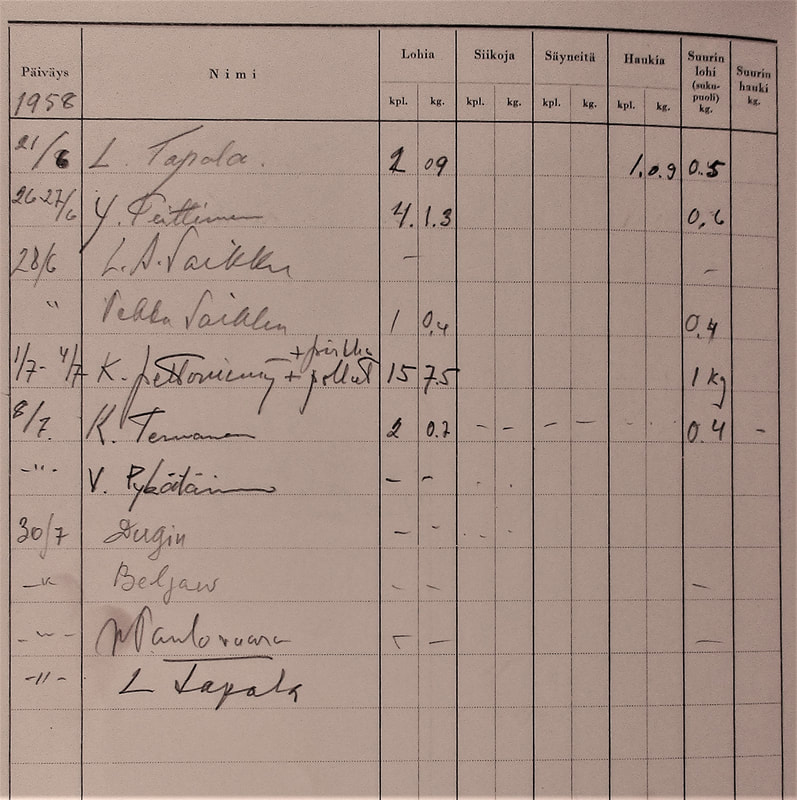 Päiväys Nimi Lohia Siikoja Säyneitä Haukia Suurin lohi (suku-puoli) kg. Suurin hauki kg.
kpl. kg. kpl. kg. kpl. kg. kpl. kg.
1958
21/6 L. Tapola. 2 09 1. 0.9 0.5
26-27/6 Y. 4. 1.3 0,6
28/6 L. A. Saikku – –
" Pekka Saikku 1 0,4 0.4
+ poikka
1/7- 4/7 K. + pollut 15 7.5 1 kg
8/7. K. Tervonen 2 0.7 – – – – – – 0.4 –
-"- V. – –
30/7 Dugin – –
-"- Beljaw – – –
-"- – – –
-"- L Tapola